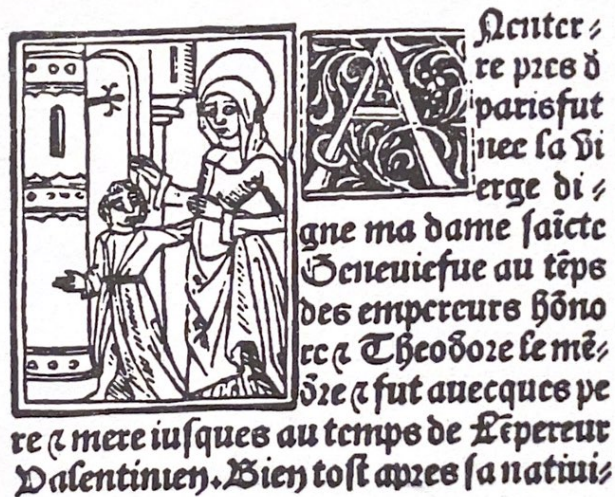 A Nenter⸗
re pres d
paris fut
nee la vi
erge di⸗
gne ma dame saīcte
Geneuiefue au tēps
des empereurs hōno
re ⁊ Theodore le mē⸗
dre ⁊ fut auecques pe
re ⁊ mere iusques au temps de Lēpereur
Valentinien. Bien tost apres sa natiui⸗